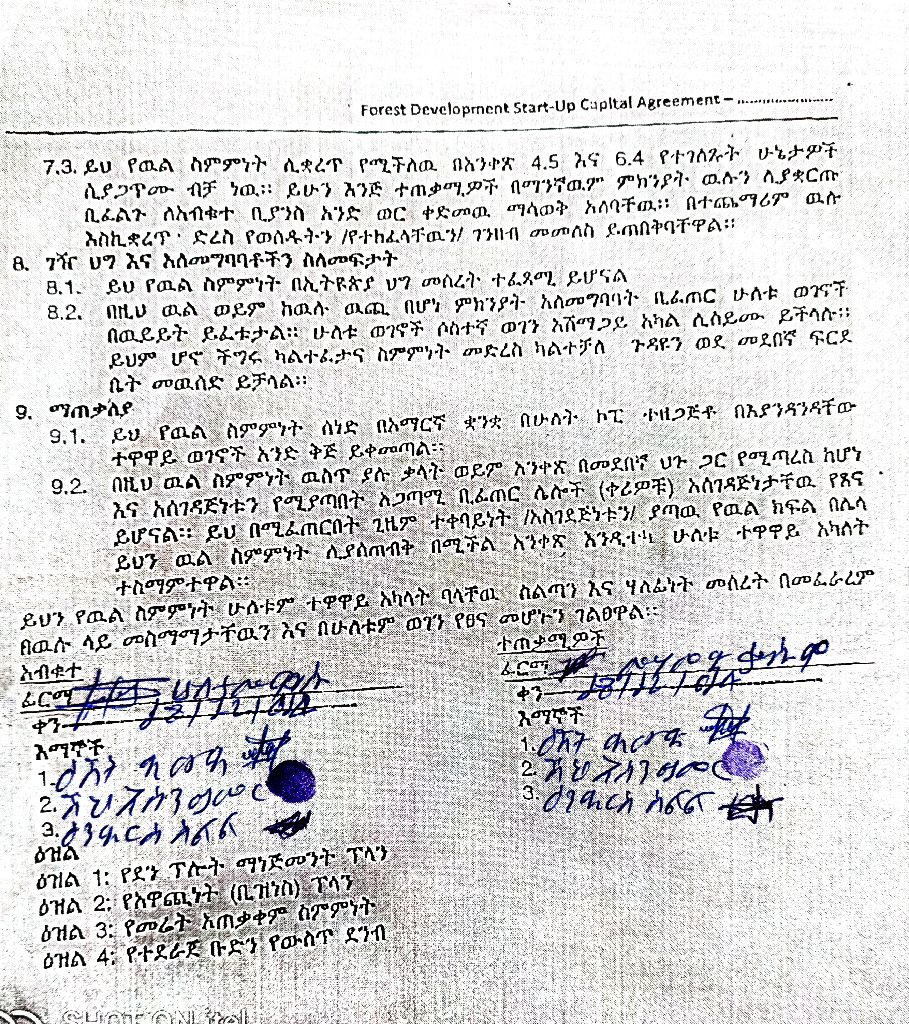 Forest Development Start-Up Capital Agreement – ......................
7.3. ይህ የዉል ስምምነት ሊቋረጥ የሚችለዉ በአንቀጽ 4.5 እና 6.4 የተገለጹት ሁኔታዎች
ሲያጋጥሙ ብቻ ነዉ፡፡ ይሁን እንጅ ተጠቃሚዎች በማንኛዉም ምክንያት ዉሉን ሊያቋርጡ
ቢፈልጉ ለአብቁተ ቢያንስ አንድ ወር ቀድመዉ ማሳወቅ አለባቸዉ፡፡ በተጨማሪም ዉሉ
እስኪቋረጥ ድረስ የወሰዱትን /የተከፈላቸዉን/ ገንዘብ መመለስ ይጠበቅባቸዋል፡፡
8. ገዥ ህግ እና አለመግባባቶችን ስለመፍታት
8.1. ይህ የዉል ስምምነት በኢትዩጵያ ህግ መሰረት ተፈጻሚ ይሆናል
8.2. በዚህ ዉል ወይም ከዉሉ ዉጪ በሆነ ምክንያት አለመግባባት ቢፈጠር ሁለቱ ወገኖች
በዉይይት ይፈቱታል፡፡ ሁለቱ ወገኖች ሶስተኛ ወገን አሸማጋይ አካል ሊሰይሙ ይችላሉ፡፡
ይህም ሆኖ ችግሩ ካልተፈታና ስምምነት መድረስ ካልተቻለ ጉዳዩን ወደ መደበኛ ፍርድ
ቤት መዉሰድ ይቻላል፡፡
9. ማጠቃለያ
9.1. ይህ የዉል ስምምነት ሰነድ በአማርኛ ቋንቋ በሁለት ኮፒ ተዘጋጅቶ በእያንዳንዳቸው
ተዋዋይ ወገኖች አንድ ቅጅ ይቀመጣል፡፡
9.2. በዚህ ዉል ስምምነት ዉስጥ ያሉ ቃላት ወይም አንቀጽ በመደበኛ ህጉ ጋር የሚጣረስ ከሆነ
እና አስገዳጅነቱን የሚያጣበት አጋጣሚ ቢፈጠር ሌሎች (ቀሪዎቹ) አስገዳጅነታቸዉ የጸና
ይሆናል፡፡ ይህ በሚፈጠርበት ጊዜም ተቀባይነት /አስገደጅነቱን/ ያጣዉ የዉል ክፍል በሌላ
ይህን ዉል ስምምነት ሊያስጠብቅ በሚችል አንቀጽ እንዲተካ ሁለቱ ተዋዋይ አካለት
ተስማምተዋል፡፡
ይህን የዉል ስምምነት ሁለቱም ተዋዋይ አካላት ባላቸዉ ስልጣን እና ሃለፊነት መሰረት በመፈራረም
በዉሉ ላይ መስማማታቸዉን እና በሁለቱም ወገን የፀና መሆኑን ገልፀዋል፡፡
አብቁተ
ፊርማ
ቀን
እማኞች
1.
2.
3.
ተጠቃሚዎች
ፊርማ
ቀን
እማኞች
1.
2.
3.
ዕዝል
ዕዝል 1: የደን ፕሎት ማነጅመንት ፕላን
ዕዝል 2: የአዋጪነት (ቢዝነስ) ፕላን
ዕዝል 3: የመሬት አጠቃቀም ስምምነት
ዕዝል 4: የተደራጀ ቡድን የውስጥ ደንብ